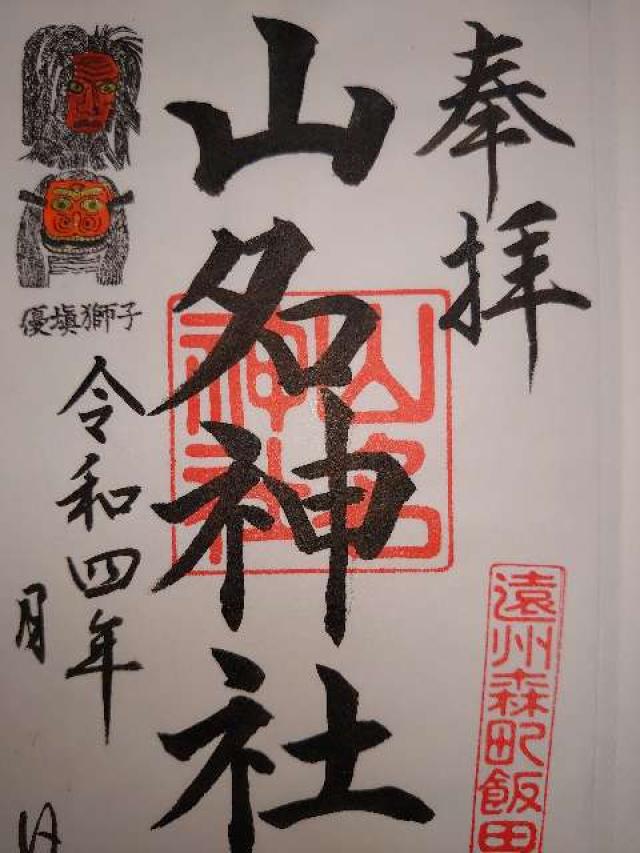 奉拝
山名神社
山名神社
遠州森町飯田
優塡獅子
令和四年
月
日